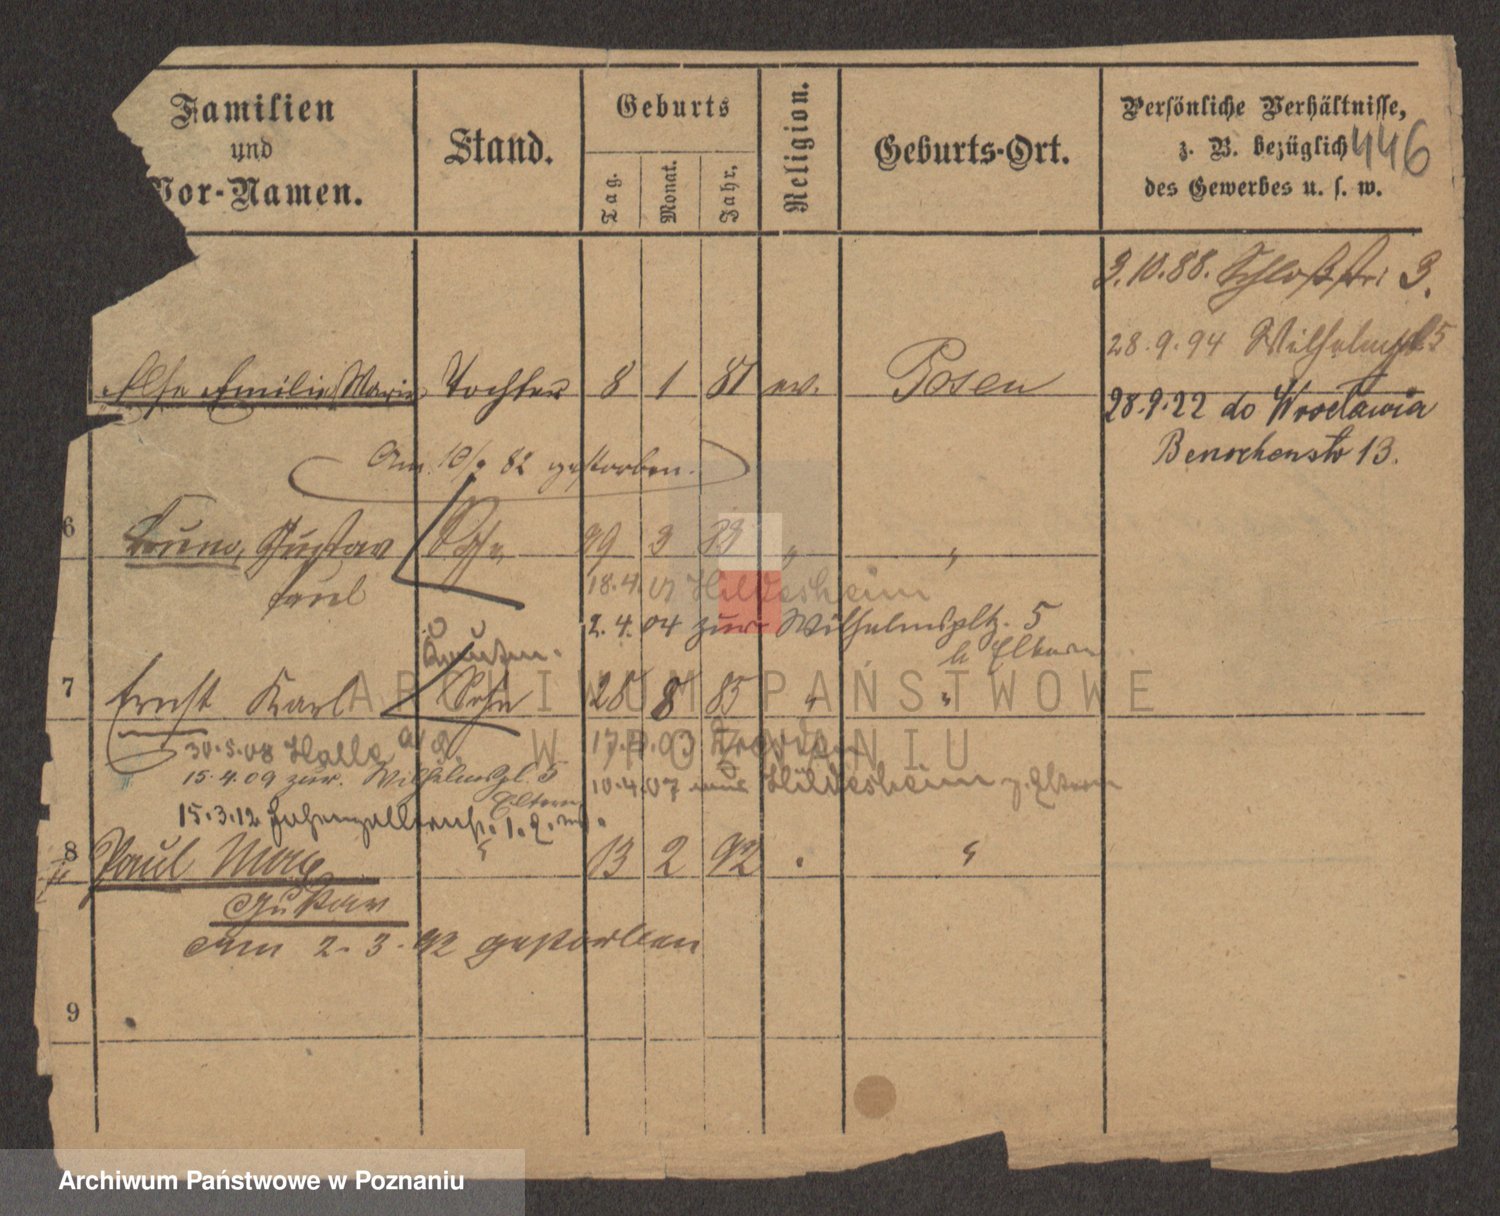 Familien
und
Vor-Namen.
Stand.
Geburts
Tag.
Monat.
Jahr.
Religion.
Geburts-Ort.
Persönliche Verhältnisse,
z. B. bezüglich
des Gewerbes u. s. w.
446
3.10.88. Schloßstr. 3.
28.9.94 Wilhelmspl. 5
Else Emilie Marie Tochter 8 1 81 ev. Posen
28.9.22 do Wrocławia
13.
Am 10/9 82 gestorben.
6 Bruno, Gustav Sohn 29 3 83 " "
Paul
18.4.07 Hildesheim
2.4.04 zur. Wilhelmsplz. 5
b. Eltern
7 Ernst Karl Sohn 28 8 85 " "
30.5.08 Halle a/S.
15.4.09 zur. Wilhelmspl. 5
Eltern
10.4.07 Hildesheim z. Eltern
15.3.12
8 Paul Max " 13 2 92 "
Gustav
Am 2.3.92 gestorben
9
ARCHIWUM PAŃSTWOWE
W POZNANIU
Archiwum Państwowe w Poznaniu